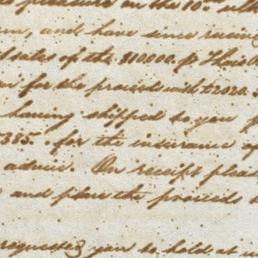 pleasure on the 10th
and have since
sales of the $10000. p
for the proceeds with
having shipped to you p
385. for the insurance of
advice. On receipt please
and place the proceeds
requested you to hold at